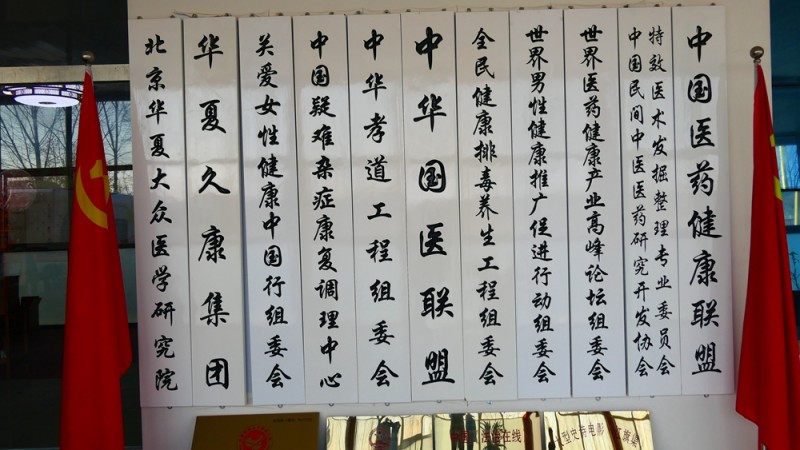 中国医药健康联盟
特效医术发掘整理专业委员会
中国民间中医医药研究开发协会
世界医药健康产业高峰论坛组委会
世界男性健康推广促进行动组委会
全民健康排毒养生工程组委会
中华国医联盟
中华孝道工程组委会
中国疑难杂症康复调理中心
关爱女性健康中国行组委会
华夏久康集团
北京华夏大众医学研究院
在线
型史诗电影